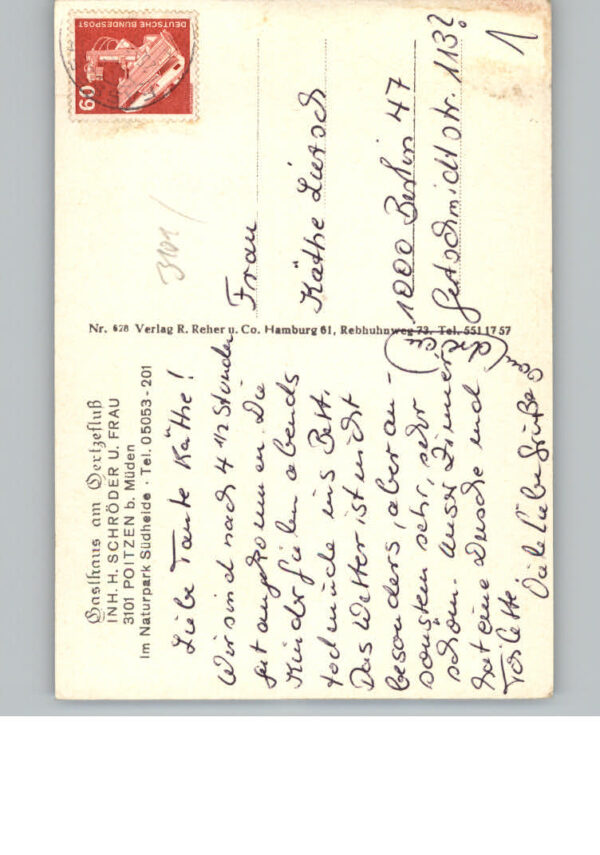 Gasthaus am Oertzefluß
INH. H. SCHRÖDER U. FRAU
3101 POITZEN b. Müden
Im Naturpark Südheide · Tel. 05053-201
Liebe Tante Käthe!
Wir sind nach 4 1/2 Stunden
gut angekommen. Die
Kinder fielen abends
todmüde ins Bett.
Das Wetter ist nicht
besonders, aber an-
sonsten sehr, sehr
schön. Unser Zimmer
hat eine Dusche und
Toilette.
Viele liebe Grüße
Nr. 628 Verlag R. Reher u. Co. Hamburg 61, Rebhuhnweg 73, Tel. 551 17 57
3101/
DEUTSCHE BUNDESPOST
60
Frau
Käthe
1000 Berlin 47
113?
1